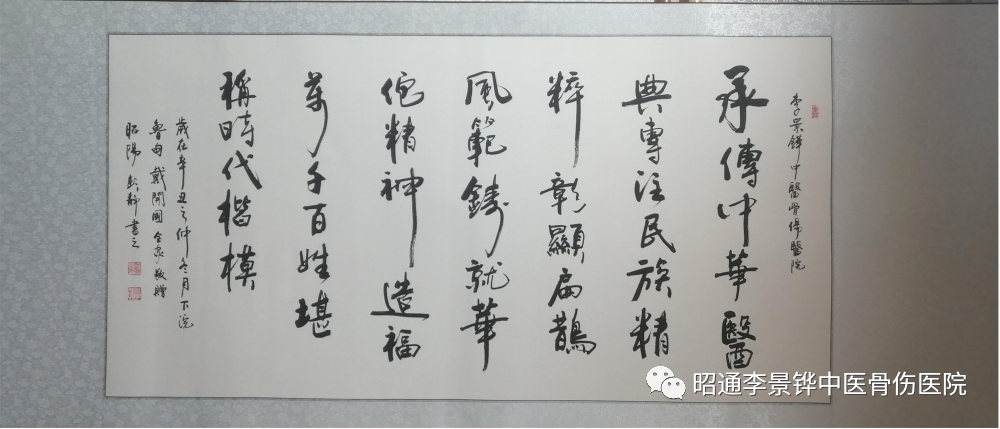 李景鏵中醫骨傷醫院
承傳中華醫
典專注民族精
粹彰顯扁鵲
風範鑄就華
佗精神造福
萬千百姓堪
稱時代楷模
歲在辛丑之仲冬月下浣
魯甸戴開國全家敬贈
昭陽彭書之
昭通李景铧中医骨伤医院